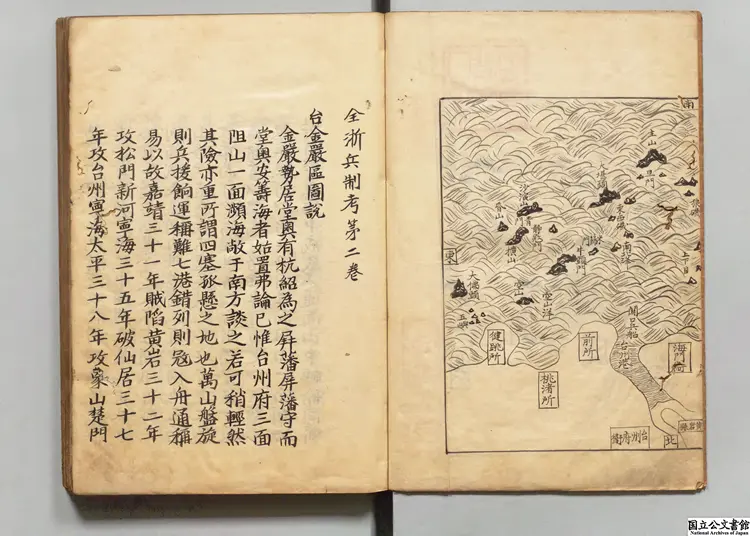 南
主山
旦門
東
大佛頭
健跳所
桃渚所
前所
台州港
北
全浙兵制考第二卷
台金嚴區圖說
金嚴勢居堂奧有杭紹為之屏藩屏藩守而
堂奧安籌海者姑置弗論已惟台州府三面
阻山一面瀕海敞于南方談之若可稍輕然
其險亦重所謂四塞孤懸之地也萬山盤旋
則兵援餉運稱難七港錯列則冦入舟通稱
易以故嘉靖三十一年賊陷黃岩三十二年
攻松門新河寧海三十五年破仙居三十七
年攻台州寧海太平三十八年攻象山楚門
国立公文書館
National Archives of Japan